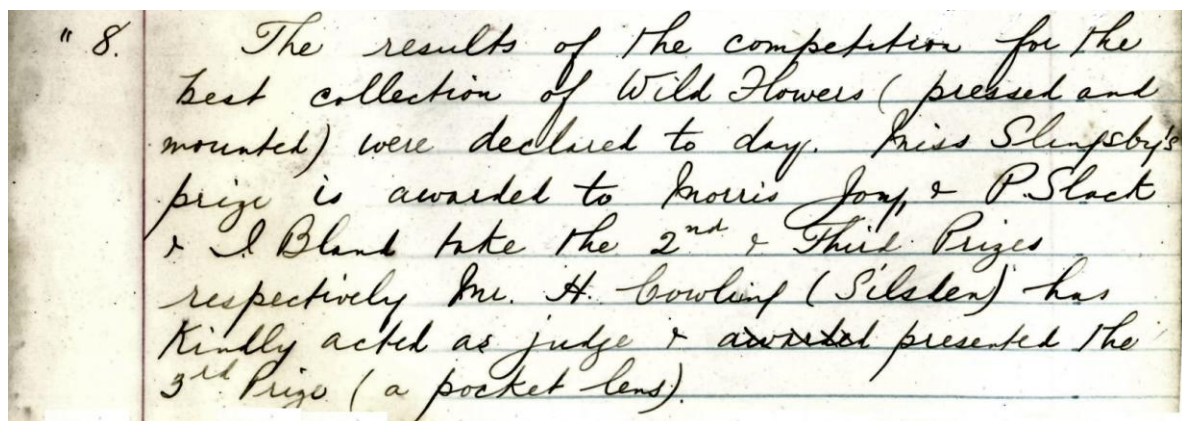 " 8. The results of the competition for the
best collection of Wild Flowers (pressed and
mounted) were declared to day. Miss Slingsby's
prize is awarded to Morris & P. Slack
& I Bland take the 2nd & Third Prizes
respectively Mr. H. Cowling (Silsden) has
Kindly acted as judge & awarded presented the
3rd Prize (a pocket lens).